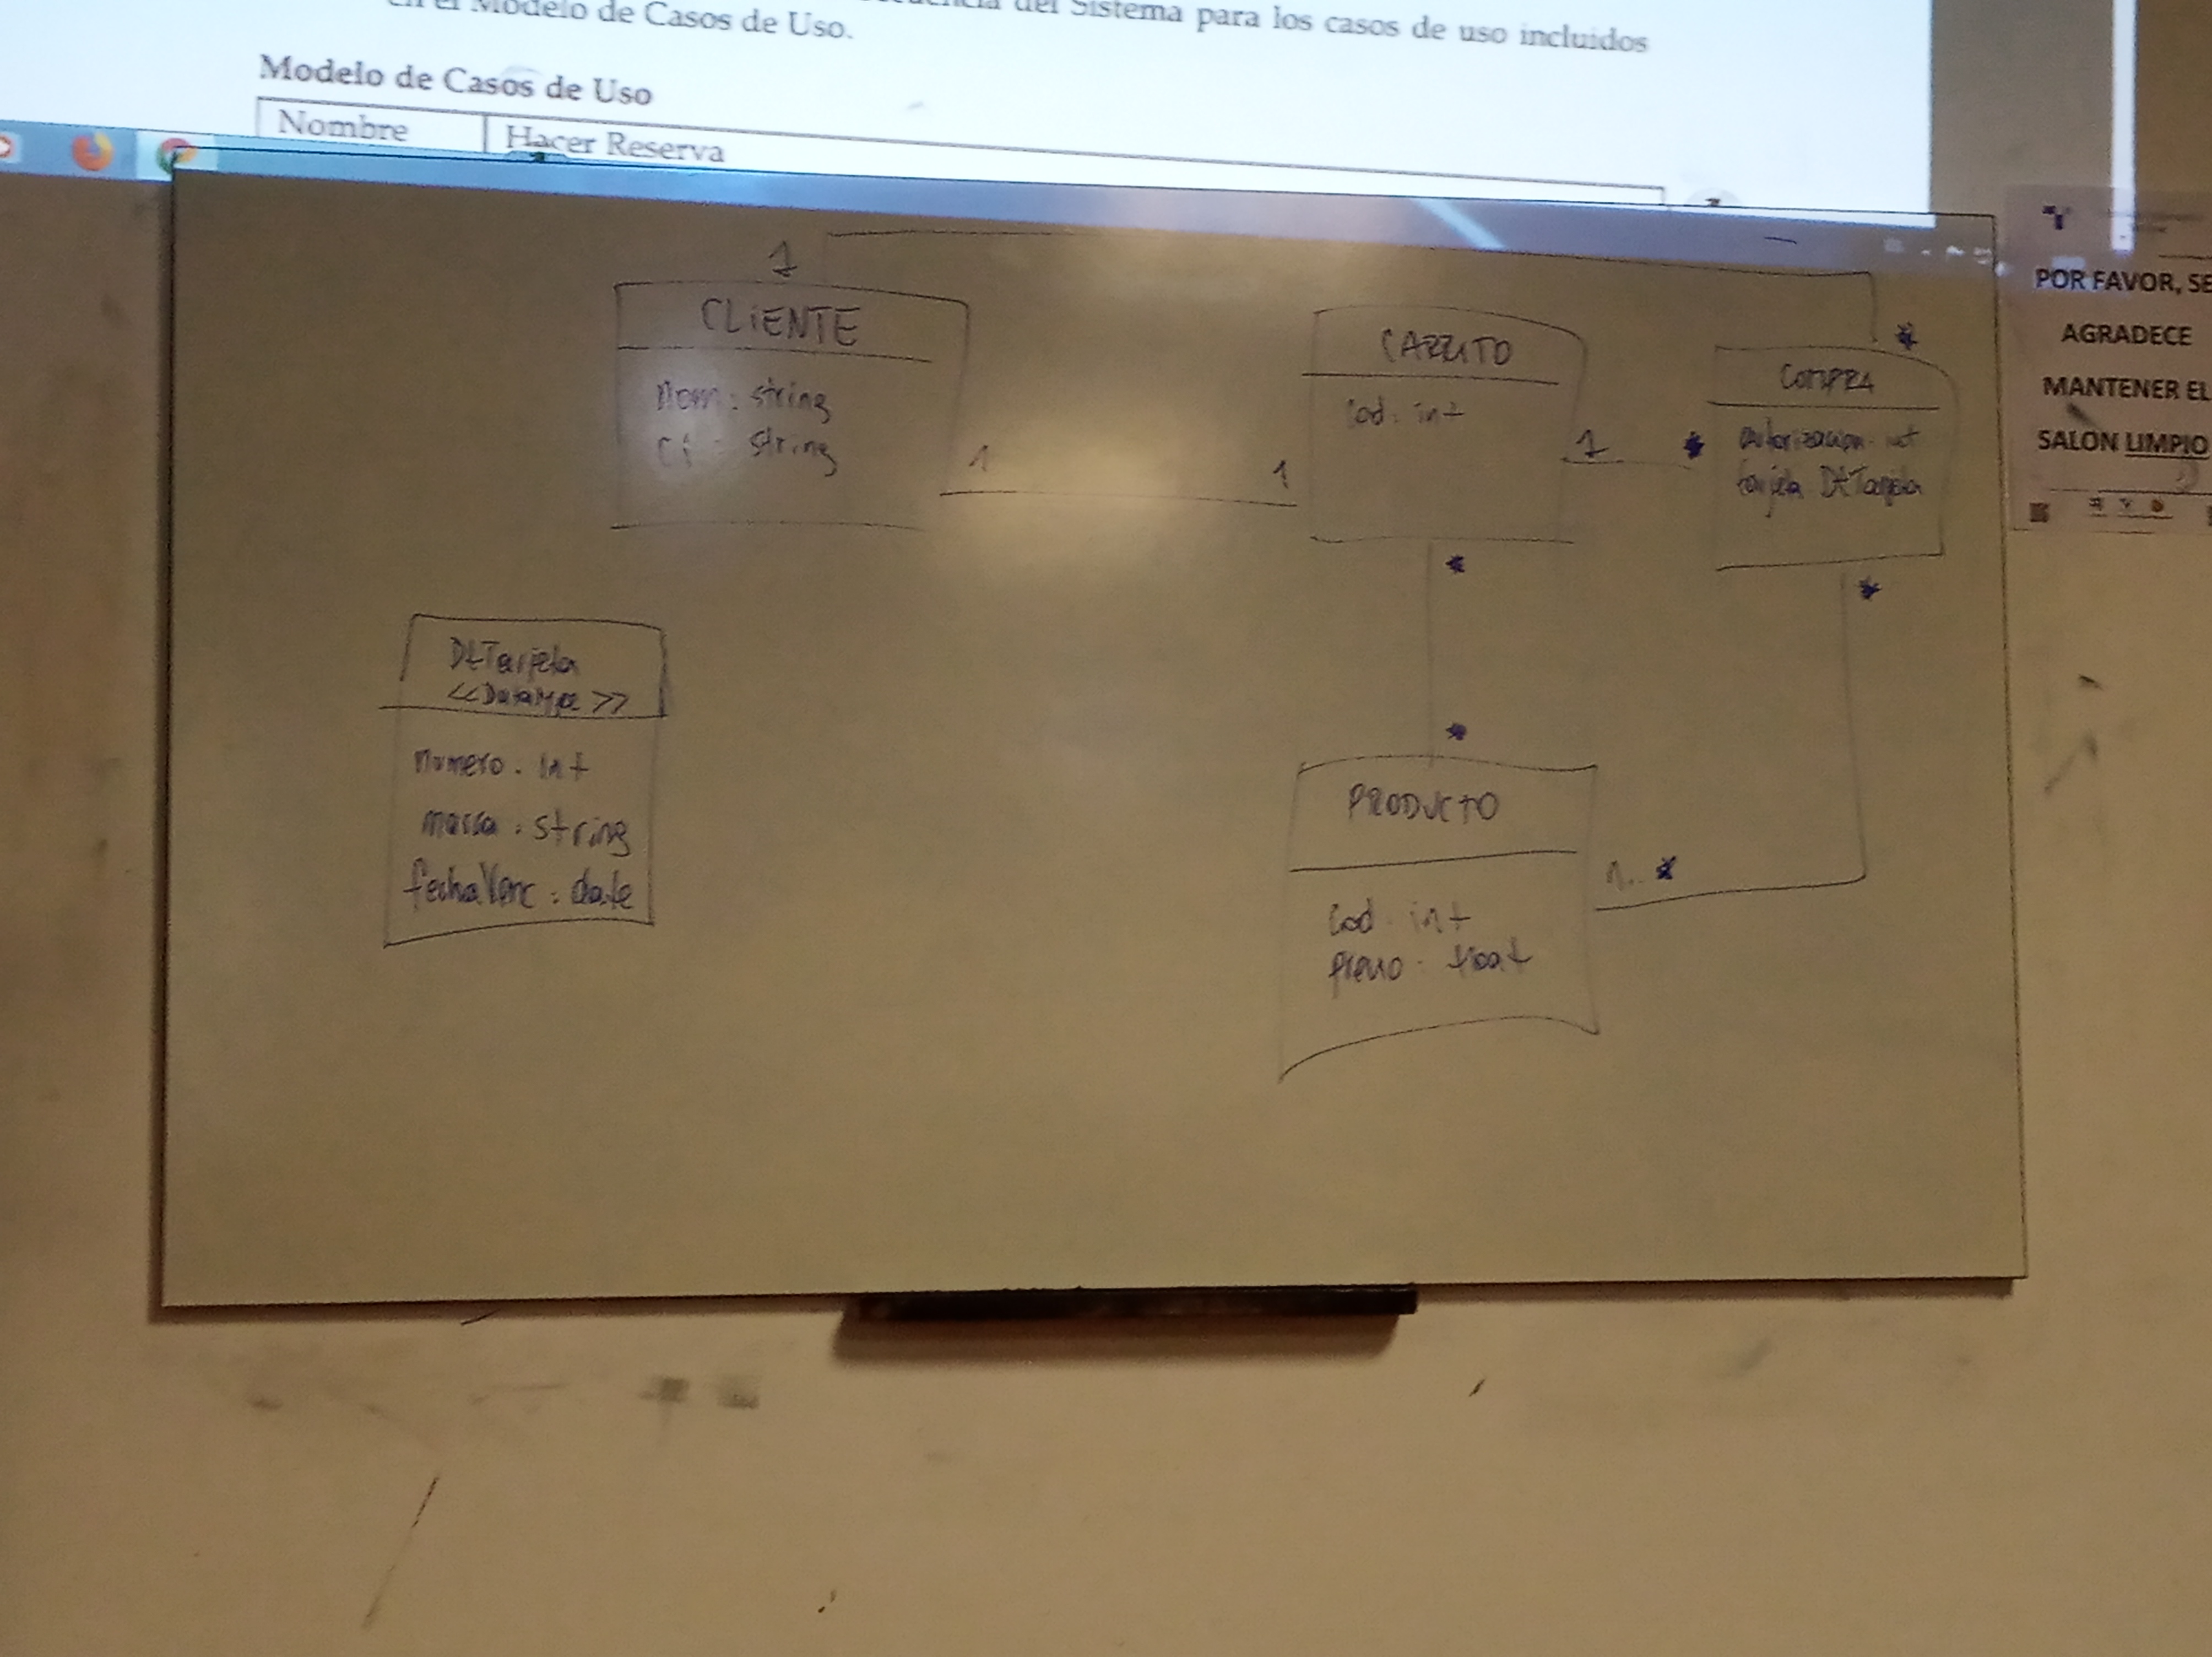 del Sistema para los casos de uso incluidos
en el Modelo de Casos de Uso.
Modelo de Casos de Uso
Nombre
Hacer Reserva
1
CLIENTE
nom: string
ci - string
1
1
CARRITO
cod: int
1
*
*
COMPRA
autorización: int
tarjeta DtTarjeta
*
*
*
PRODUCTO
cod: int
precio: float
1..*
DtTarjeta
<<Datatype>>
numero: int
marca: string
fechaVenc: date
POR FAVOR, SE
AGRADECE
MANTENER EL
SALON LIMPIO